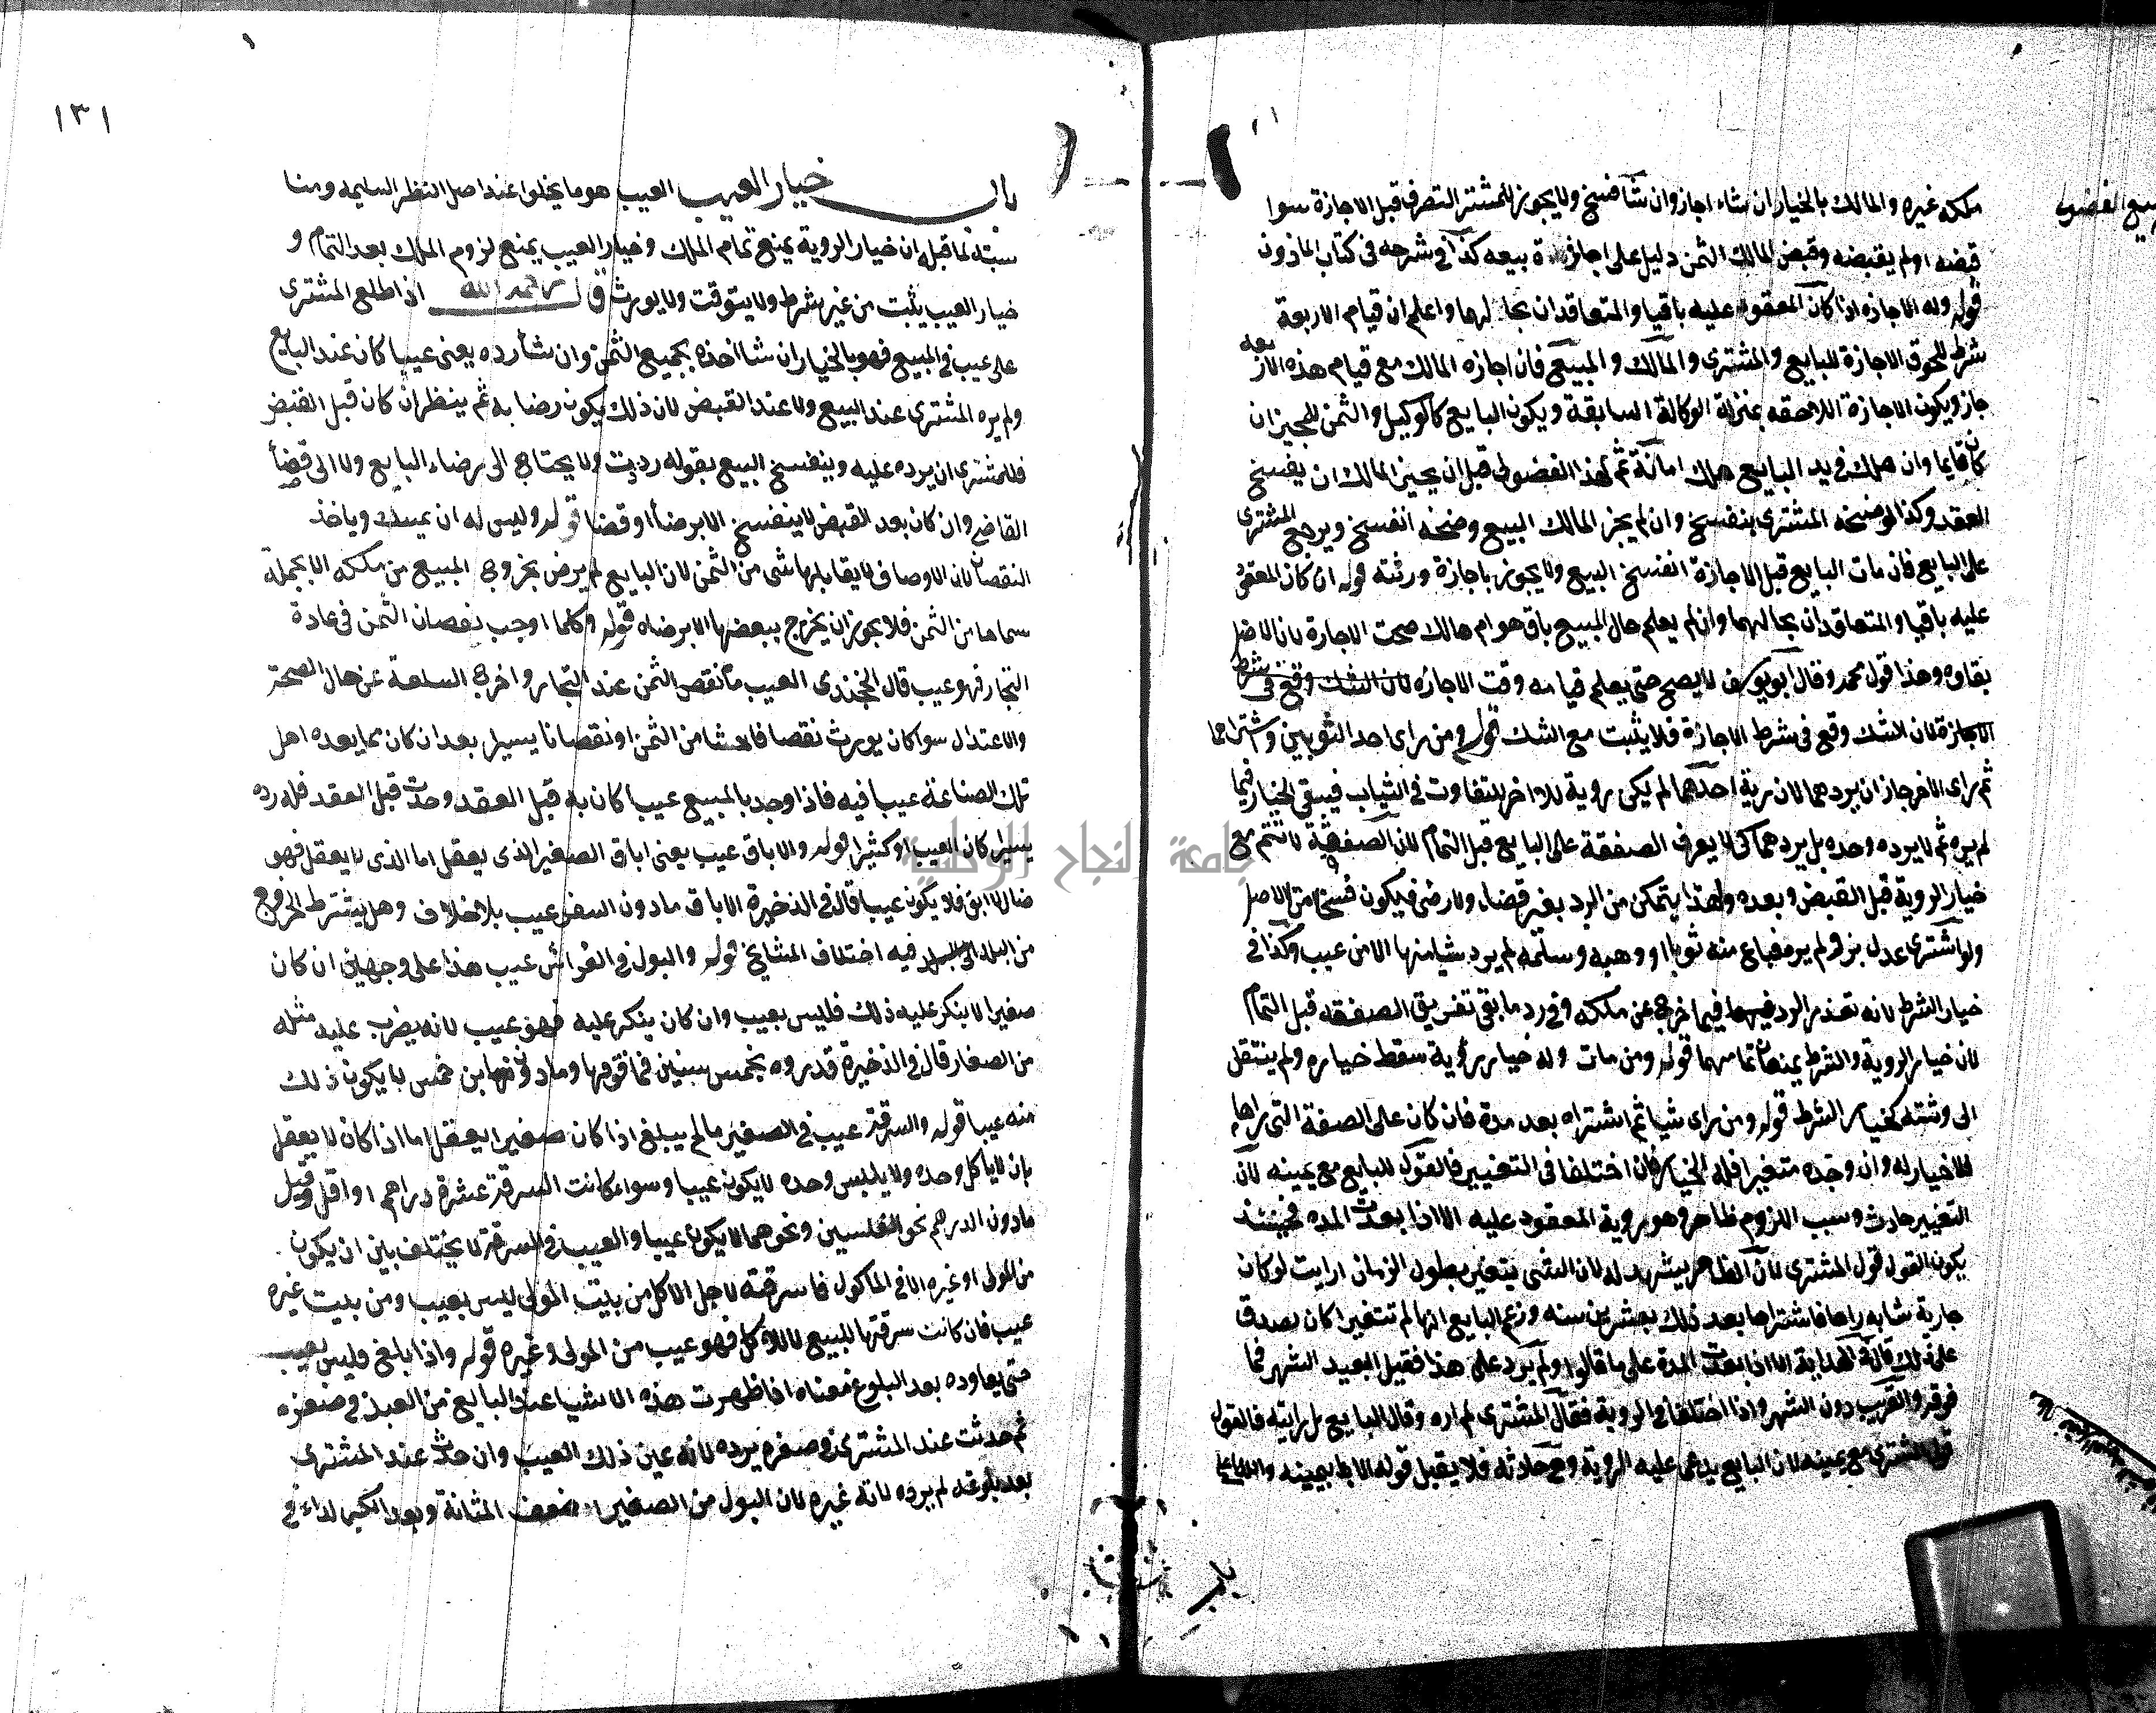 بيع الفضولي
ملكه غيره والمالك بالخيار ان شاء اجاز وان شا فسخ ولا يجوز للمشتر التصرف قبل الاجازة سوا
قبضه او لم يقبضه وقبض المالك الثمن دليل على اجازة بيعه كذا في شرحه في كتاب الماذون
قوله وله الاجازه اذا كان المعقود عليه باقيا والمتعاقدان بحالهما واعلم ان قيام الاربعة
شرط للحوق الاجازة للبايع والمشترى والمالك والمبيع فان اجازه المالك مع قيام هذه الاربعه
جاز ويكون الاجازة اللاحقه بمنزلة الوكالة السابقة ويكون البايع كالوكيل والثمن للمجيز ان
كان قايما وان هلك في يد البايع هلك امانة ثم لهذا الفضولى قبل ان يجيز المالك ان يفسخ
العقد وكذا لو فسخه المشترى ينفسخ وان لم يجز المالك البيع وفسخه انفسخ ويرجع المشترى
على البايع فان مات البايع قبل الاجازة انفسخ البيع ولا يجوز باجازة ورثته قوله ان كان المعقود
عليه باقيا والمتعاقدان بحالهما وان لم يعلم حال المبيع باق هو ام هالك صحت الاجازة لان الاصل
بقاوه وهذا قول محمد وقال ابو يوسف لا يصح حتى يعلم قيامه وقت الاجازه لان الشك وقع في شرط
الاجازة لان الشك وقع في شرط الاجازة فلا يثبت مع الشك قوله ومن راى احد الثوبين واشتراهما
ثم راى الاخر جاز ان يردهما لان رية احدهما لم يكن روية للاخر للتفاوت في الثياب فيبقى الخيار فيما
لم يره ثم لا يرده وحده بل يردهما كي لا يفرق الصفقة على البايع قبل التمام لان الصفقة لا تتم مع
خيار الروية قبل القبض وبعده ولهذا يتمكن من الرد بغير قضاء ولا رضى فيكون فسخا من الاصل
ولو اشترى عدل بز ولم يره فباع منه ثوبا او وهبه وسلمه لم يرد شيا منها الا من عيب وكذا في
خيار الشرط لانه تعذر الرد فيما خرج عن ملكه وفي رد ما بقى تفريق الصفقه قبل التمام
لان خيار الروية والشرط يمنعان تمامهما قوله ومن مات وله خيار روية سقط خياره ولم ينتقل
الى ورثته كخيار الشرط قوله ومن راى شيا ثم اشتراه بعد مدة فان كان على الصفة التي راها
فلا خيار له وان وجده متغيرا فله الخيار فان اختلفا في التغيير فالقول للبايع مع يمينه لان
التغيير حادث وسبب اللزوم ظاهر وهو روية المعقود عليه الا اذا بعدت المده فحينئذ
يكون القول قول المشترى لان الظاهر يشهد له لان الشى يتغير بطول الزمان ارايت لو كان
جارية شابه راها فاشتراها بعد ذلك بعشرين سنه وزعم البايع انها لم تتغير اكان يصدق
على ذلك قال في الهداية الا اذا بعدت المدة على ما قالوا ولم يزد على هذا فقيل البعيد الشهر فما
فوقه والقريب دون الشهر واذا اختلفا في الروية فقال المشترى لم اره وقال البايع بل رايته فالقول
قول المشترى مع يمينه لان البايع يدعى عليه الروية وهي حادثه فلا يقبل قوله الا ببينه والله اعلم
باب
١٣١
باب خيار العيب العيب هو ما يخلوا عنه اصل الفطر السليمه ومنا
سبته لما قبله ان خيار الروية يمنع تمام الملك وخيار العيب يمنع لزوم الملك بعد التمام و
خيار العيب يثبت من غير شرط ولا يتوقت ولا يورث قال رحمه الله اذا طلع المشترى
على عيب في المبيع فهو بالخيار ان شا اخذه بجميع الثمن وان شا رده يعنى عيبا كان عند البايع
ولم يره المشترى عند البيع ولا عند القبض لان ذلك يكون رضا به ثم ينظر ان كان قبل القبض
فللمشترى ان يرده عليه وينفسخ البيع بقوله رديت ولا يحتاج الى رضاء البايع ولا الى قضأ
القاضى وان كان بعد القبض لا ينفسخ الا برضا او قضا قوله وليس له ان يمسك وياخذ
النقصان لان الاوصاف لا يقابلها شى من الثمن لان البايع لم يرض بخروج المبيع من ملكه الا بجملة
سماها من الثمن فلا يجوز ان يخرج ببعضها الا برضاه قوله وكلما اوجب نقصان الثمن في عادة
التجار فهو عيب قال الخجندى العيب ما نقص الثمن عند التجار واخرج السلعة عن حال الصحة
والاعتدال سوا كان يورث نقصا فاحشا من الثمن او نقصانا يسيرا بعد ان كان مما يعده اهل
تلك الصناعة عيبا فيه فاذا وجد بالمبيع عيبا كان به قبل العقد وحدث قبل العقد فله رده
يسيرا كان العيب او كثيرا قوله والاباق عيب يعنى اباق الصغير الذى يعقل اما الذى لا يعقل فهو
ضال لا ابق فلا يكون عيبا قال في الذخيرة الاباق مادون السفر عيب بلا خلاف وهل يشترط الخروج
من البلد فيه اختلاف المشايخ قوله والبول في الفراش عيب هذا على وجهين ان كان
صغيرا لا ينكر عليه ذلك فليس بعيب وان كان ينكر عليه فهو عيب لانه يضرب عليه مثله
من الصغار قال في الذخيرة قدروه بخمس سنين فما فوقها وما دونها بن خمس لا يكون ذلك
منه عيبا قوله والسرقة عيب في الصغير ما لم يبلغ اذا كان صغيرا يعقل اما اذا كان لا يعقل
بان لا ياكل وحده ولا يلبس وحده لا يكون عيبا وسواء كانت السرقة عشرة دراهم او اقل وقيل
مادون الدرهم نحو الفلسين ونحوهما لا يكون عيبا والعيب في السرقة لا يختلف بين ان يكون
من المولى او غيره الا في الماكول فما سرقته لاجل الاكل من بيت المولى ليس بعيب ومن بيت غيره
عيب فان كانت سرقتها للبيع لا للاكل فهو عيب من المولى وغيره قوله واذا بلغ فليس بعيب
حتى يعاوده بعد البلوغ معناه اذا ظهرت هذه الاشيا عند البايع من العبد في صغره
ثم حدثت عند المشترى في صغره يرده لانه عين ذلك العيب وان حدث عند المشترى
بعد بلوغه لم يرده لانه غيره لان البول من الصغير لضعف المثانة وبعد الكبر لداء في
جامعة النجاح الوطنية